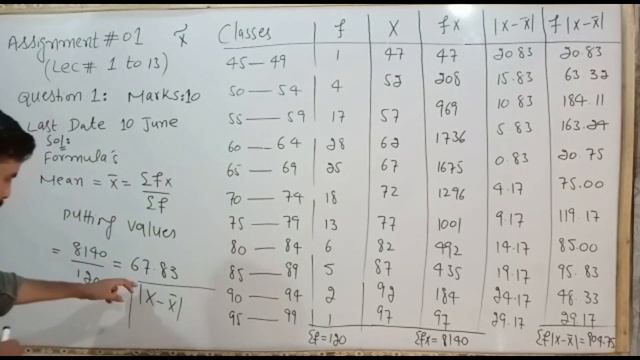 Assignment # 01 x̃
(Lec# 1 to 13)
Question 1: Marks:10
Last Date 10 June
Sol:
Formula's
Mean = x̄ = Σfx / Σf
Putting values
= 8140 / 120 = 67.83
|X-x̄|
Classes f X fx |X-x̄| f|X-x̄|
45 — 49 1 47 47 20.83 20.83
50 — 54 4 52 208 15.83 63.32
55 — 59 17 57 969 10.83 184.11
60 — 64 28 62 1736 5.83 163.24
65 — 69 25 67 1675 0.83 20.75
70 — 74 18 72 1296 4.17 75.00
75 — 79 13 77 1001 9.17 119.17
80 — 84 6 82 492 14.17 85.00
85 — 89 5 87 435 19.17 95.83
90 — 94 2 92 184 24.17 48.33
95 — 99 1 97 97 29.17 29.17
Σf=120 Σfx= 8140 Σf|X-x̄|=904.75